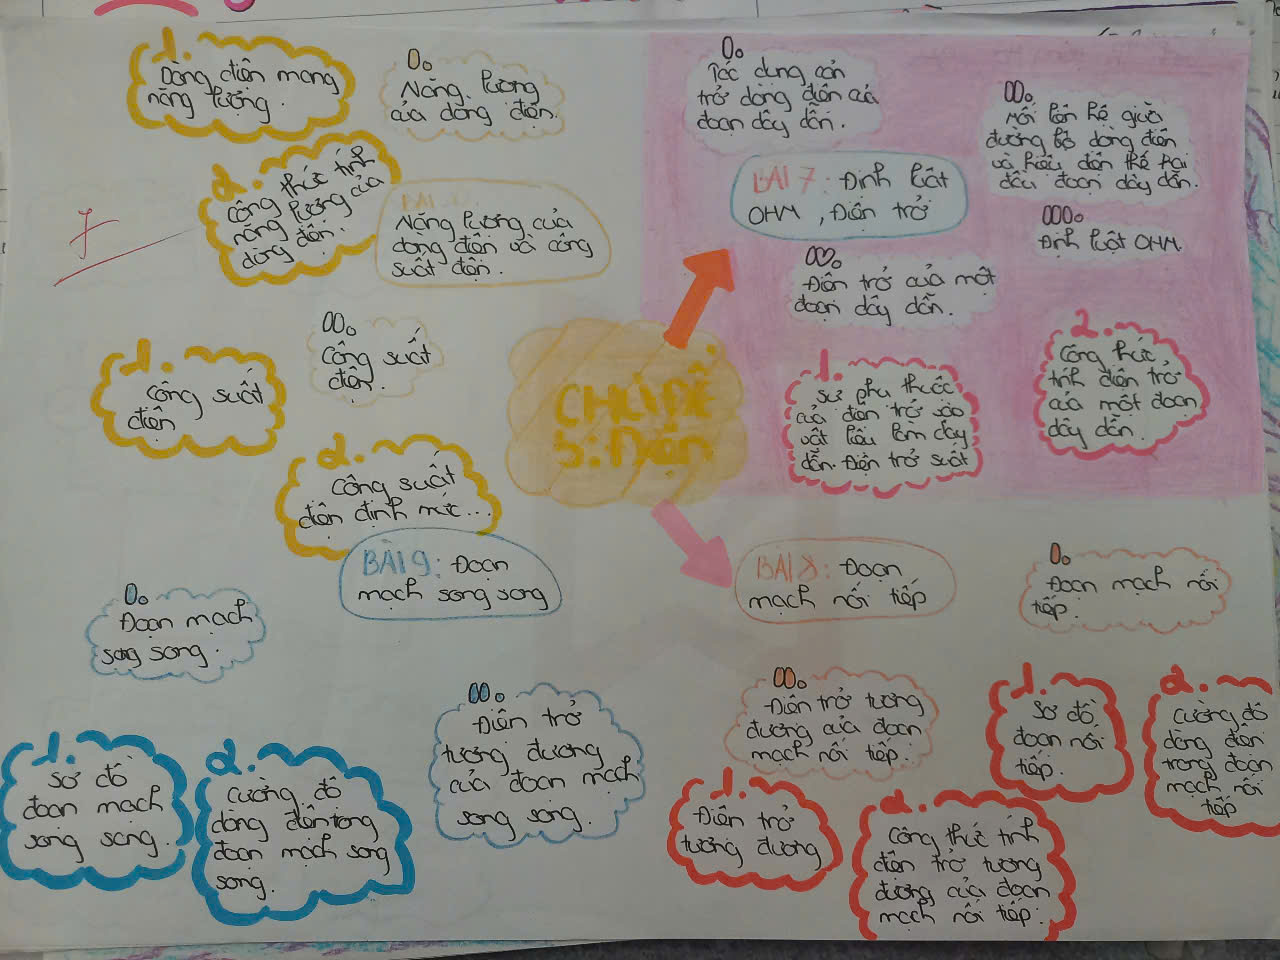 CHỦ ĐỀ
5: Điện
1.
Dòng điện mang
năng lượng.
I.
Năng lượng
của dòng điện.
2.
Công thức tính
năng lượng của
dòng điện.
BÀI
Năng lượng của
dòng điện và công
suất điện.
II.
Công suất
điện.
1.
Công suất
điện
2.
Công suất
điện định mức...
I.
Tác dụng cản
trở dòng điện của
đoạn dây dẫn.
BÀI 7: Định luật
OHM, Điện trở
III.
Mối liên hệ giữa
cường độ dòng điện
và hiệu điện thế hai
đầu đoạn dây dẫn.
IIII.
Định luật OHM.
II.
Điện trở của một
đoạn dây dẫn.
1.
Sự phụ thuộc
của điện trở vào
vật liệu làm dây
dẫn. Điện trở suất
2.
Công thức
tính điện trở
của một đoạn
dây dẫn.
BÀI 9: Đoạn
mạch song song
I.
Đoạn mạch
song song.
1.
Sơ đồ
đoạn mạch
song song.
2.
Cường độ
dòng điện trong
đoạn mạch song
song.
II.
Điện trở
tương đương
của đoạn mạch
song song.
BÀI 8: Đoạn
mạch nối tiếp
I.
Đoạn mạch nối
tiếp.
II.
Điện trở tương
đương của đoạn
mạch nối tiếp.
1.
Sơ đồ
đoạn nối
tiếp.
2.
Cường độ
dòng điện
trong đoạn
mạch nối
tiếp
1.
Điện trở
tương đương
2.
Công thức tính
điện trở tương
đương của đoạn
mạch nối tiếp.